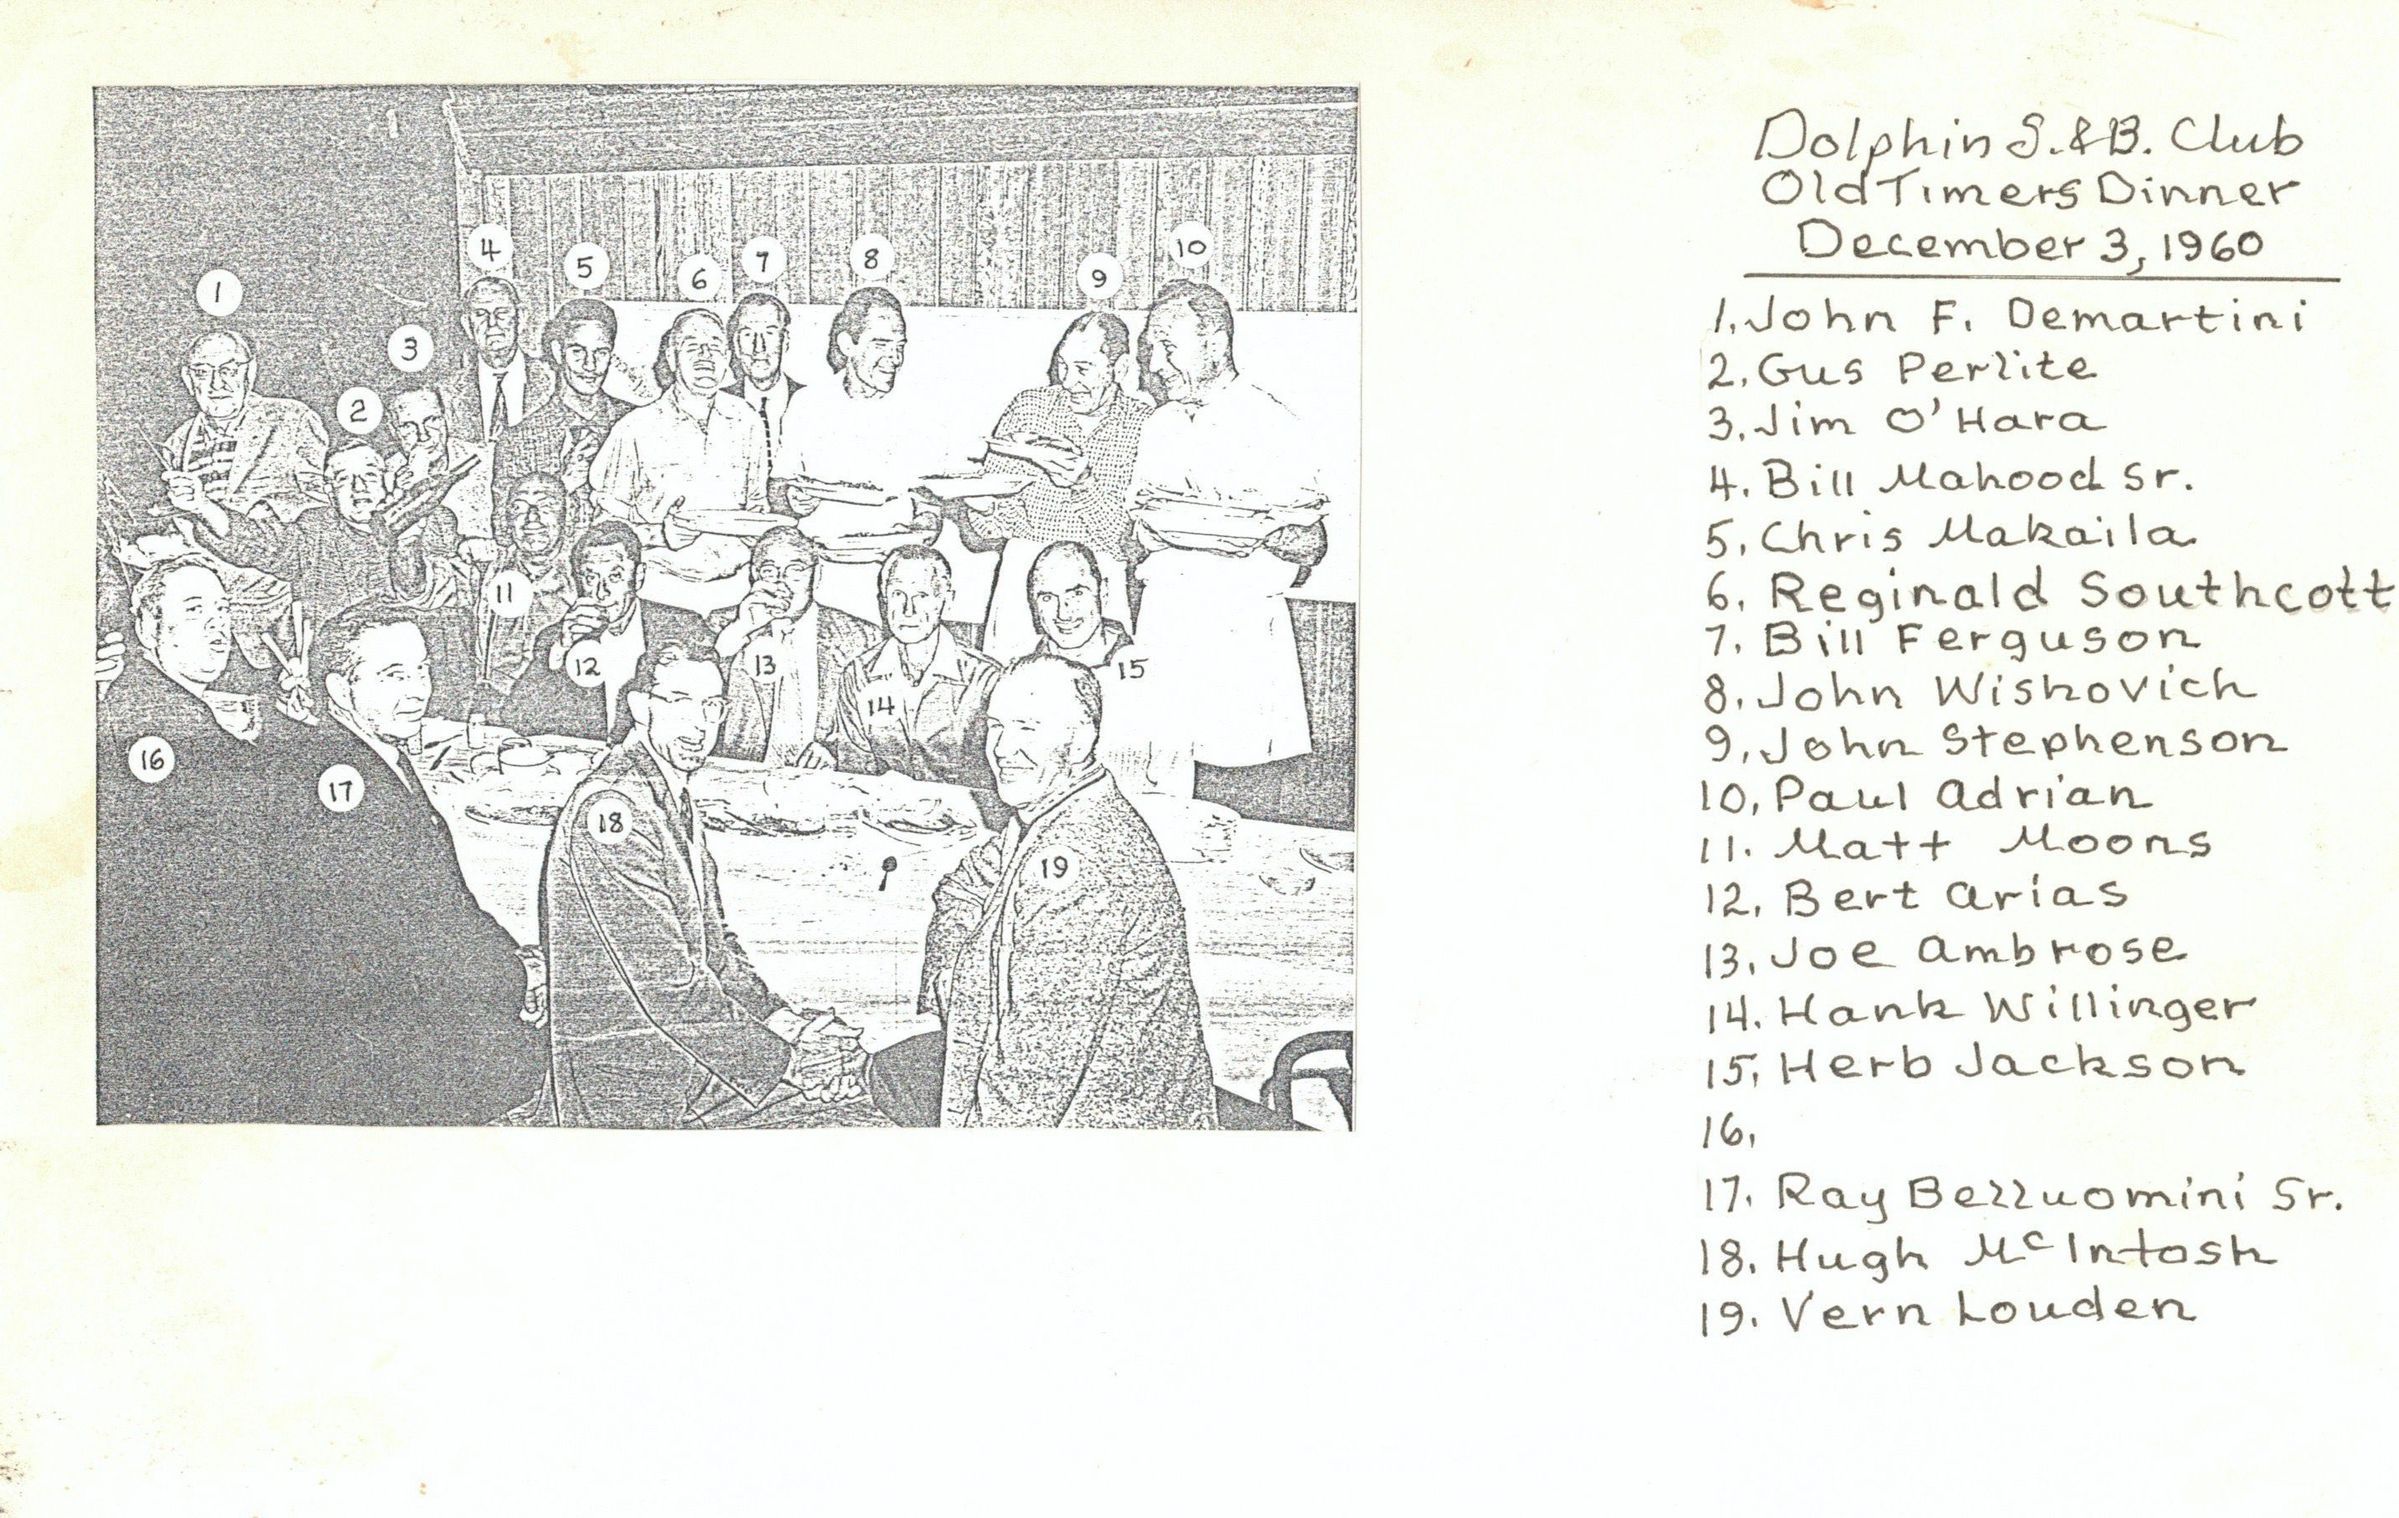 1
2
3
4
5
6
7
8
9
10
11
12
13
14
15
16
17
18
19
Dolphin S. & B. Club
Old Timers Dinner
December 3, 1960
1. John F. Demartini
2. Gus Perlite
3. Jim O'Hara
4. Bill Mahood Sr.
5. Chris Makaila
6. Reginald Southcott
7. Bill Ferguson
8. John Wishovich
9. John Stephenson
10. Paul Adrian
11. Matt Moons
12. Bert Arias
13. Joe Ambrose
14. Hank Willinger
15. Herb Jackson
16.
17. Ray Belluomini Sr.
18. Hugh McIntosh
19. Vern Louden